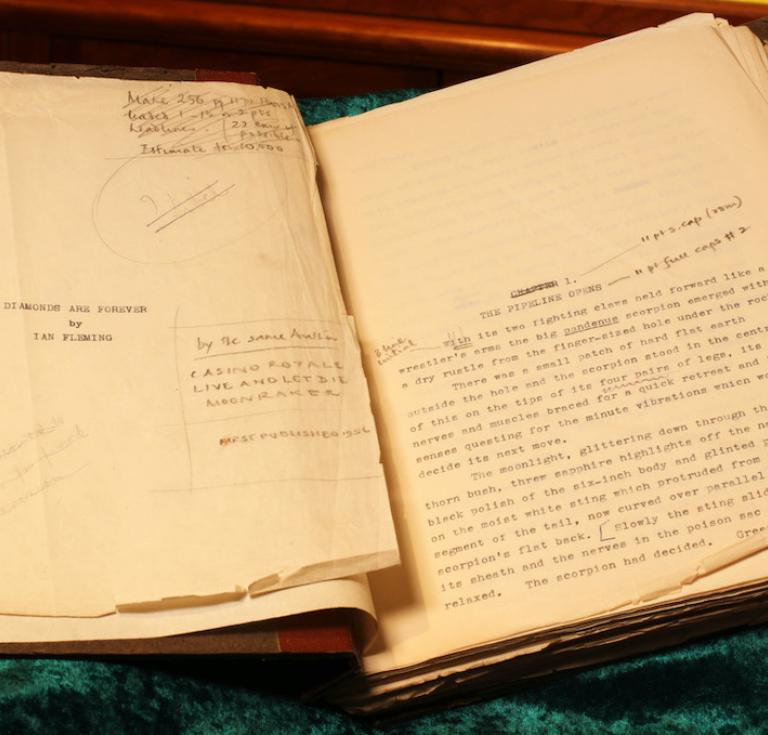 Make 256 pp 11 pt
based 1
headlines.
possible
Estimate for 10,000
DIAMONDS ARE FOREVER
by
IAN FLEMING
by the same Author
CASINO ROYALE
LIVE AND LET DIE
MOONRAKER
FIRST PUBLISHED 1956
11 pt s.cap (rom)
11 pt full caps # 2
CHAPTER 1.
THE PIPELINE OPENS
2 line
initial
With its two fighting claws held forward like a
wrestler's arms the big pandenus scorpion emerged with
a dry rustle from the finger-sized hole under the rock
There was a small patch of hard flat earth
outside the hole and the scorpion stood in the centr
of this on the tips of its four pairs of legs, its
nerves and muscles braced for a quick retreat and
senses questing for the minute vibrations which wo
decide its next move.
The moonlight, glittering down through th
thorn bush, threw sapphire highlights off the
black polish of the six-inch body and glinted
on the moist white sting which protruded from
segment of the tail, now curved over parallel
scorpion's flat back. [Slowly the sting slid
its sheath and the nerves in the poison sac
relaxed. The scorpion had decided. Gree